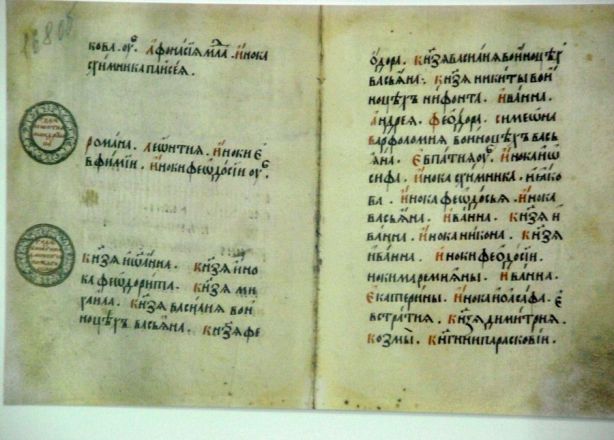 кова. ѹ҃. Афонасїѧ мл҃а. И҆нока
схимника паисеѧ.
Романа. леѡнтиѧ. И҆ноки Е҆
вфимїи. И҆ноки феѡдѡсїи ѹ҃.
Кнѕѧ иѡанна. Кнѕѧ ино
ка феѡдорита. Кнѕѧ ми
хаила. Кнѕѧ василиа во и
ноцѣхъ васьѧна. Кнѕѧ фе
ѻдора. Кнѕѧ василиѧ во иноцѣх
васьѧна. Кнѕѧ никиты во и
ноцѣхъ нифонта. И҆ванна.
Андреѧ. Феѻдора. симеѡна
Варфоломиѧ во иноцѣхъ вась
ѧна. Е҆впатиѧ ѹ҃. И҆нока иѡ
сифа. И҆нока схимника. иꙗко
ва. И҆нока феѡдосьѧ. И҆нока
васьѧна. И҆ванна. Кнѕѧ и
ванна. И҆нока никона. Кнѕѧ
иванна. И҆ноки феѡдосїи.
иноки маремиꙗны. И҆ванна.
Е҆катерины. И҆нока иѡасафа. Е҆
встратиѧ. Кнѕѧ димитриѧ.
Козмы. Кнгини парасковїи.